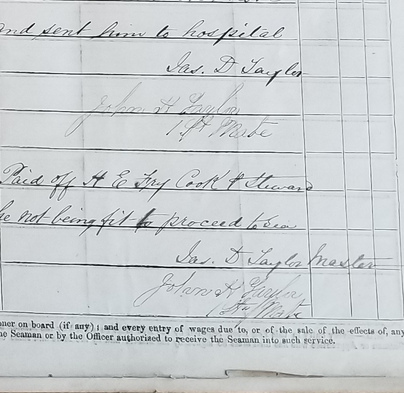 and sent him to hospital
Jas. D Taylor
John H Taylor
1st Mate
Paid off H E Fry Cook & Steward
he not being fit to proceed to sea
Jas. D Taylor Master
John H Taylor
1st Mate
oner on board (if any); and every entry of wages due to, or of the sale of the effects of, any
he Seaman or by the Officer authorised to receive the Seaman into such service.